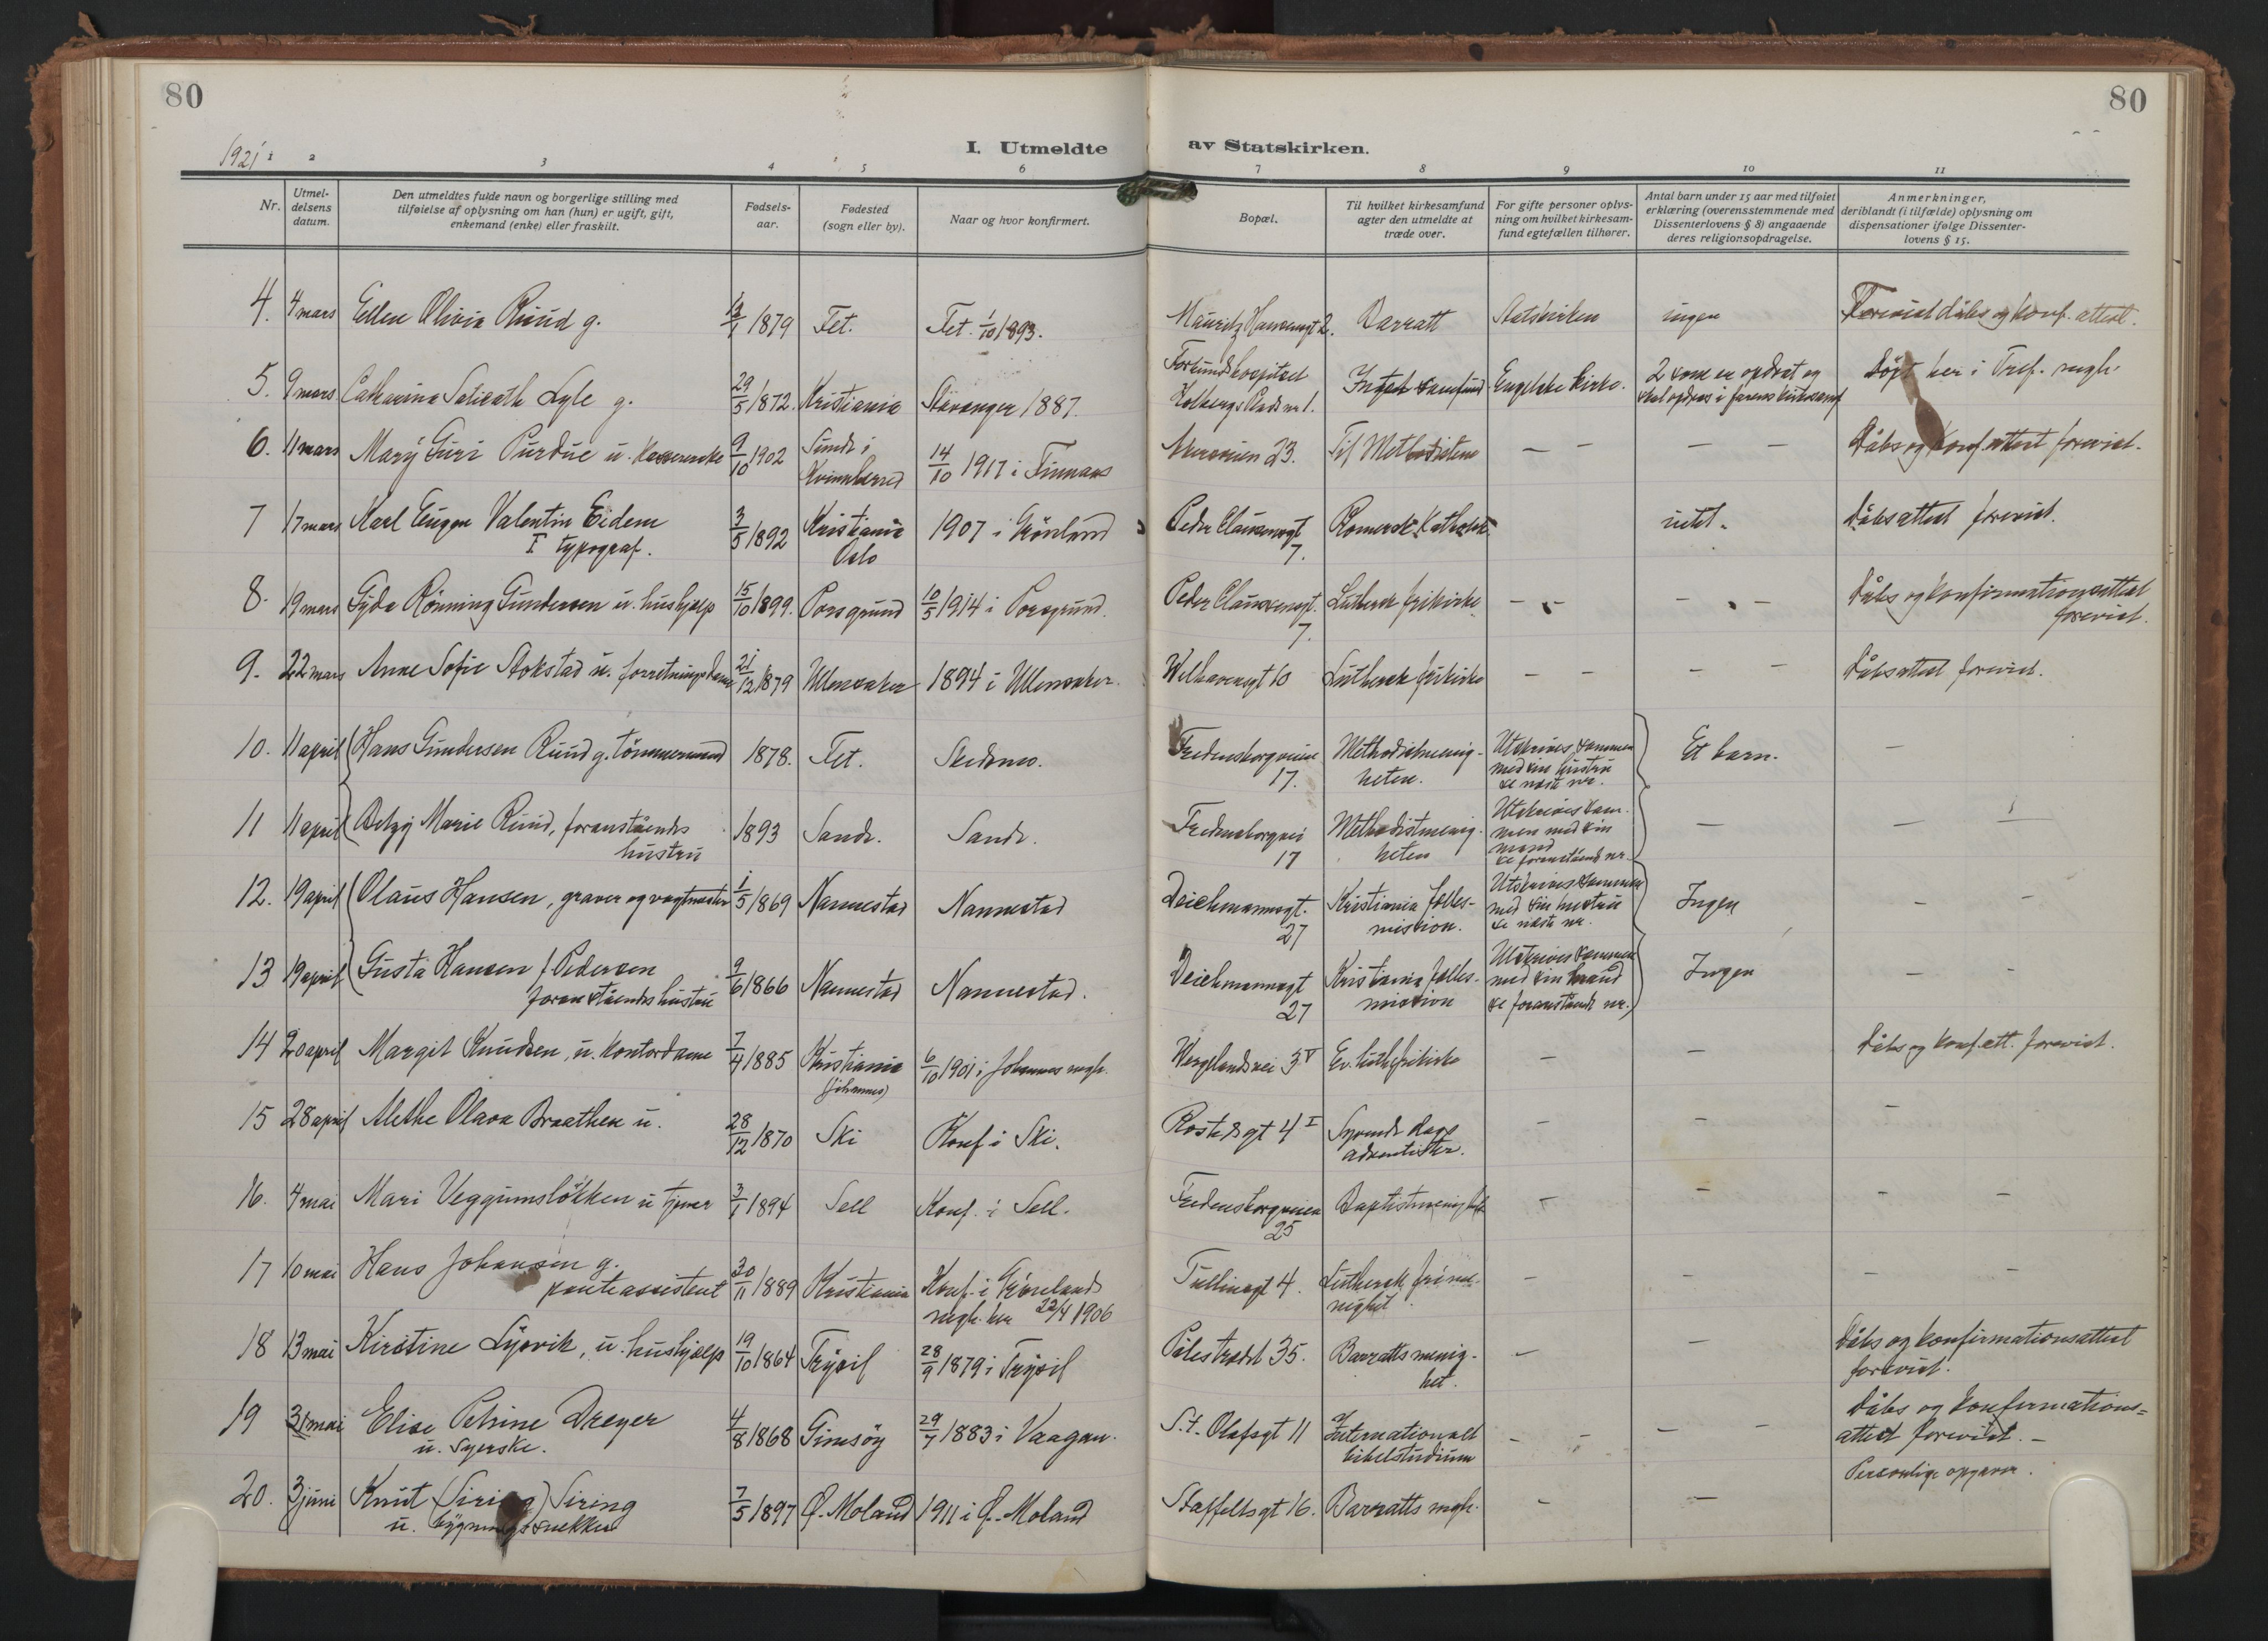 80
80
1921
I. Utmeldte av Statskirken.
1 2 3 4 5 6 7 8 9 10 11
Nr.
Utmel-
delsens
datum.
Den utmeldtes fulde navn og borgerlige stilling med
tilføielse av oplysning om han (hun) er ugift, gift,
enkemand (enke) eller fraskilt.
Fødsels-
aar.
Fødested
(sogn eller by).
Naar og hvor konfirmert.
Bopæl.
Til hvilket kirkesamfund
agter den utmeldte at
træde over.
For gifte personer oplys-
ning om hvilket kirkesam-
fund egtefællen tilhører.
Antal barn under 15 aar med tilføiet
erklæring (overensstemmende med
Dissenterlovens § 8) angaaende
deres religionsopdragelse.
Anmerkninger,
deriblandt (i tilfælde) oplysning om
dispensationer ifølge Dissenter-
lovens § 15.
4. 4 mars Ellen Olivia Ruud g. 1879 Fet. Fet. 1/10 1893. Mauritz Hansensgt 2. Barratt Statskirken ingen Forevist dåbs og konf. attest.
5. 9 mars Catharina Lyle g. 29/5 1872. Kristiania Stavanger 1887. Holbergs Plads nr 1. Intet samfund Engelske kirke. 2 som er opdrat og
skal opdras i farens kirkesamf
Døpt her i Tref. mgh.
6. 11 mars Mary Guri Purdue u. 9/10 1902 Sunde i
Kvinnherred
14/10 1917 i Finnaas 23. Til Methodistene — — — — Dåbs og konf. attest forevist.
7 17 mars Karl Eugen Valentin Eidem
typograf.
3/5 1892 Kristiania
Oslo
1907 i Grønland Peder Claussønsgt
7.
Romersk Katholsk intet. Dåbsattest forevist.
8. 19 mars Gyda Rönning Gundersen u. hushjælp 15/10 1899. Porsgrund 10/5 1914 i Porsgrund. Peder Claussønsgt.
7.
Luthersk frikirke — — — — Dåbs og konfirmationsattest
forevist.
9. 22 mars Anne Sofie Stokstad u. forretningsdame 21/12 1879 Ullensaker 1894 i Ullensaker. Welhavensgt 10 Luthersk frikirke — — — — Dåbsattest forevist.
10. 11 april Hans Gundersen Ruud g. tömmermand 1878. Fet. Skedsmo. Fredensborgveien
17.
Methodistmenig-
heten.
Utskrives sammen
med sin hustru
se næste nr.
Et barn. —
11 11 april Marie Ruud, foranståendes
hustru
1893 Sande. Sande. Fredensborgvei
17
Methodistmenig-
heten
Utskrives sam-
men med sin
mand
se foranstående nr.
— — —
12. 19 april Olaus Hansen, graver og vagtmester 1/5 1869 Nannestad Nannestad Deichmannsgt.
27
Kristiania fælles-
mission.
Utskrives sammen
med sin hustru
se næste nr.
Ingen — —
13 19 april Gusta Hansen f. Pedersen
foranståendes hustru
9/6 1866 Nannestad Nannestad. Deichmannsgt
27
Kristiania fælles-
mission
Utskrives sammen
med sin mand
se foranstående nr.
Ingen — —
14 20 april Margit Knudsen, u. kontordame 7/4 1885 Kristiania
(Johannes)
6/10 1901 i Johannes mgh. Wergelandsvei 3 V Ev. luth. frikirke — — Dåbs og konf. att. forevist.
15 28 april Alethe Olava Braathen u. 28/12 1870 Ski Konf i Ski. Rosteds gt 4 I Syvende dags
adventister.
— — —
16. 4 mai Mari Veggumsløkken u tjener 3/1 1894 Sell Konf. i Sell. Fredensborgveien
25
Baptistmenighet — — — —
17 10 mai Hans Johansen g.
panteassistent
30/11 1889 Kristiania Konf. i Grønlands
mgh. her 22/4 1906
Tullinsgt 4. Luthersk frime-
nighet.
— — — —
18 13 mai Kirstine Lysvik, u. hushjælp 19/10 1864 Trysil 28/9 1879 i Trysil Pilestrædet 35. Barratts menig-
het.
— — Dåbs og konfirmationsattest
forevist.
19 31 mai Elise Petrine Dreyer
u. syerske.
4/8 1868 Gimsøy 29/7 1883 i Vaagan. St. Olafsgt 11 Internationalt
bibelstudium
— — — — Dåbs og konfirmations=
attest forevist. —
20. 3 juni Knut (Siring) Siring
u. bygningssnekker
7/5 1897 Ø. Moland 1911 i Ø. Moland Staffeldtsgt 16. Barratts mgh. — — Personlige opgaver.